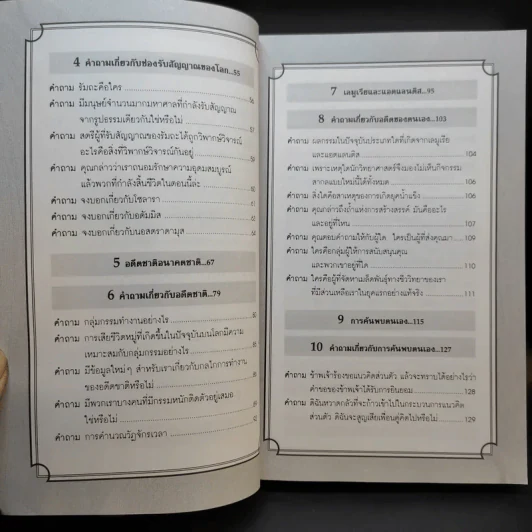 4 คำถามเกี่ยวกับช่องรับสัญญาณของโลก...55
คำถาม รัมถะคือใคร 56
คำถาม มีมนุษย์จำนวนมากมหาศาลที่กำลังรับสัญญาณ
จากรูปธรรมเดียวกันใช่หรือไม่ 57
คำถาม สตรีผู้ที่รับสัญญาณของรัมถะได้ถูกวิพากษ์วิจารณ์
อะไรคือสิ่งที่วิพากษ์วิจารณ์กันอยู่ 58
คำถาม คุณกล่าวว่าเราถนอมรักษาความอุดมสมบูรณ์
แล้วพวกที่กำลังสิ้นชีวิตในตอนนี้ละ
คำถาม จงบอกเกี่ยวกับโซลารา
คำถาม จงบอกเกี่ยวกับอดัมมิส
คำถาม จงบอกเกี่ยวกับนอสตราดามุส
5 อดีตชาติอนาคตชาติ...67
6 คำถามเกี่ยวกับอดีตชาติ...79
คำถาม กลุ่มกรรมทำงานอย่างไร
คำถาม การเสียชีวิตหมู่ที่เกิดขึ้นในปัจจุบันบนโลกมีความ
เหมาะสมกับกลุ่มกรรมอย่างไร
คำถาม มีข้อมูลใหม่ๆ สำหรับเราเกี่ยวกับกลไกการทำงาน
ของอดีตชาติหรือไม่
คำถาม มีพวกเราบางคนที่มีกรรมหนักติดตัวอยู่เสมอ
ใช่หรือไม่
คำถาม การคำนวณวัฏจักรเวลา
7 เลมูเรียและแอตแลนติส...95
8 คำถามเกี่ยวกับอดีตของตนเอง...103
คำถาม ผลกรรมในปัจจุบันประเภทใดที่เกิดจากเลมูเรีย
และแอตแลนติส 104
คำถาม เพราะเหตุใดนักวิทยาศาสตร์จึงมองไม่เห็นกิจกรรม
สากลแบบใหม่นี้ได้ทั้งหมด 104
คำถาม สิ่งใดคือสาเหตุของการเกิดยุคน้ำแข็ง 106
คำถาม คุณกล่าวถึงถ้ำแห่งการสร้างสรรค์ มันคืออะไร
และอยู่ที่ไหน 107
คำถาม คุณตอบคำถามให้กับผู้ใด ใครเป็นผู้ที่ส่งคุณมา 109
คำถาม ใครคือกลุ่มผู้ให้การสนับสนุนคุณ
และพวกเขาอยู่ที่ใด 110
คำถาม ใครคือผู้ที่จัดหาเมล็ดพันธุ์ทางชีววิทยาของเรา
ที่มีส่วนเหลือเราในยุคแรกอย่างแท้จริง 111
9 การค้นพบตนเอง...115
10 คำถามเกี่ยวกับการค้นพบตนเอง...127
คำถาม ข้าพเจ้าร้องขอแนวคิดส่วนตัว แล้วจะทราบได้อย่างไรว่า
คำขอของข้าพเจ้าได้รับการยินยอม 128
คำถาม ดิฉันหวาดกลัวที่จะก้าวเข้าไปในกระบวนการแนวคิด
ส่วนตัว ดิฉันจะสูญเสียเพื่อนคู่คิดไปหรือไม่ 129